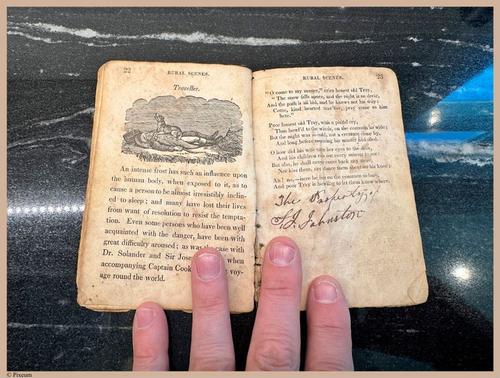 22 RURAL SCENES.
Traveller.
An intense frost has such an influence upon
the human body, when exposed to it, as to
cause a person to be almost irresistibly inclin-
ed to sleep; and many have lost their lives
from want of resolution to resist the tempta-
tion. Even some persons who have been well
acquainted with the danger, have been with
great difficulty aroused; as was the case with
Dr. Solander and Sir when
accompanying Captain Cook voy-
age round the world.
RURAL SCENES. 23
"O come to my master," cries honest old Tray,
"The snow falls apace, and the night is so
And the path is all hid, and he knows not his way;
Come, kind hearted pray come to him
here."
Poor honest old Tray, with a pitiful cry,
Thus howl'd to the winds, on the common, his
But the night was so cold, not a creature came by,
And long before morning his master had died.
O how did his wife turn her eyes to the
And his children run out every minute to see:
But alas, he shall never come back any more,
Nor kiss them, nor dance them about on his knee:
Ah! no,—there he lies on the common so bare,
And poor Tray is howling to let them know where.
The Property of
Johnston
© Pixeum